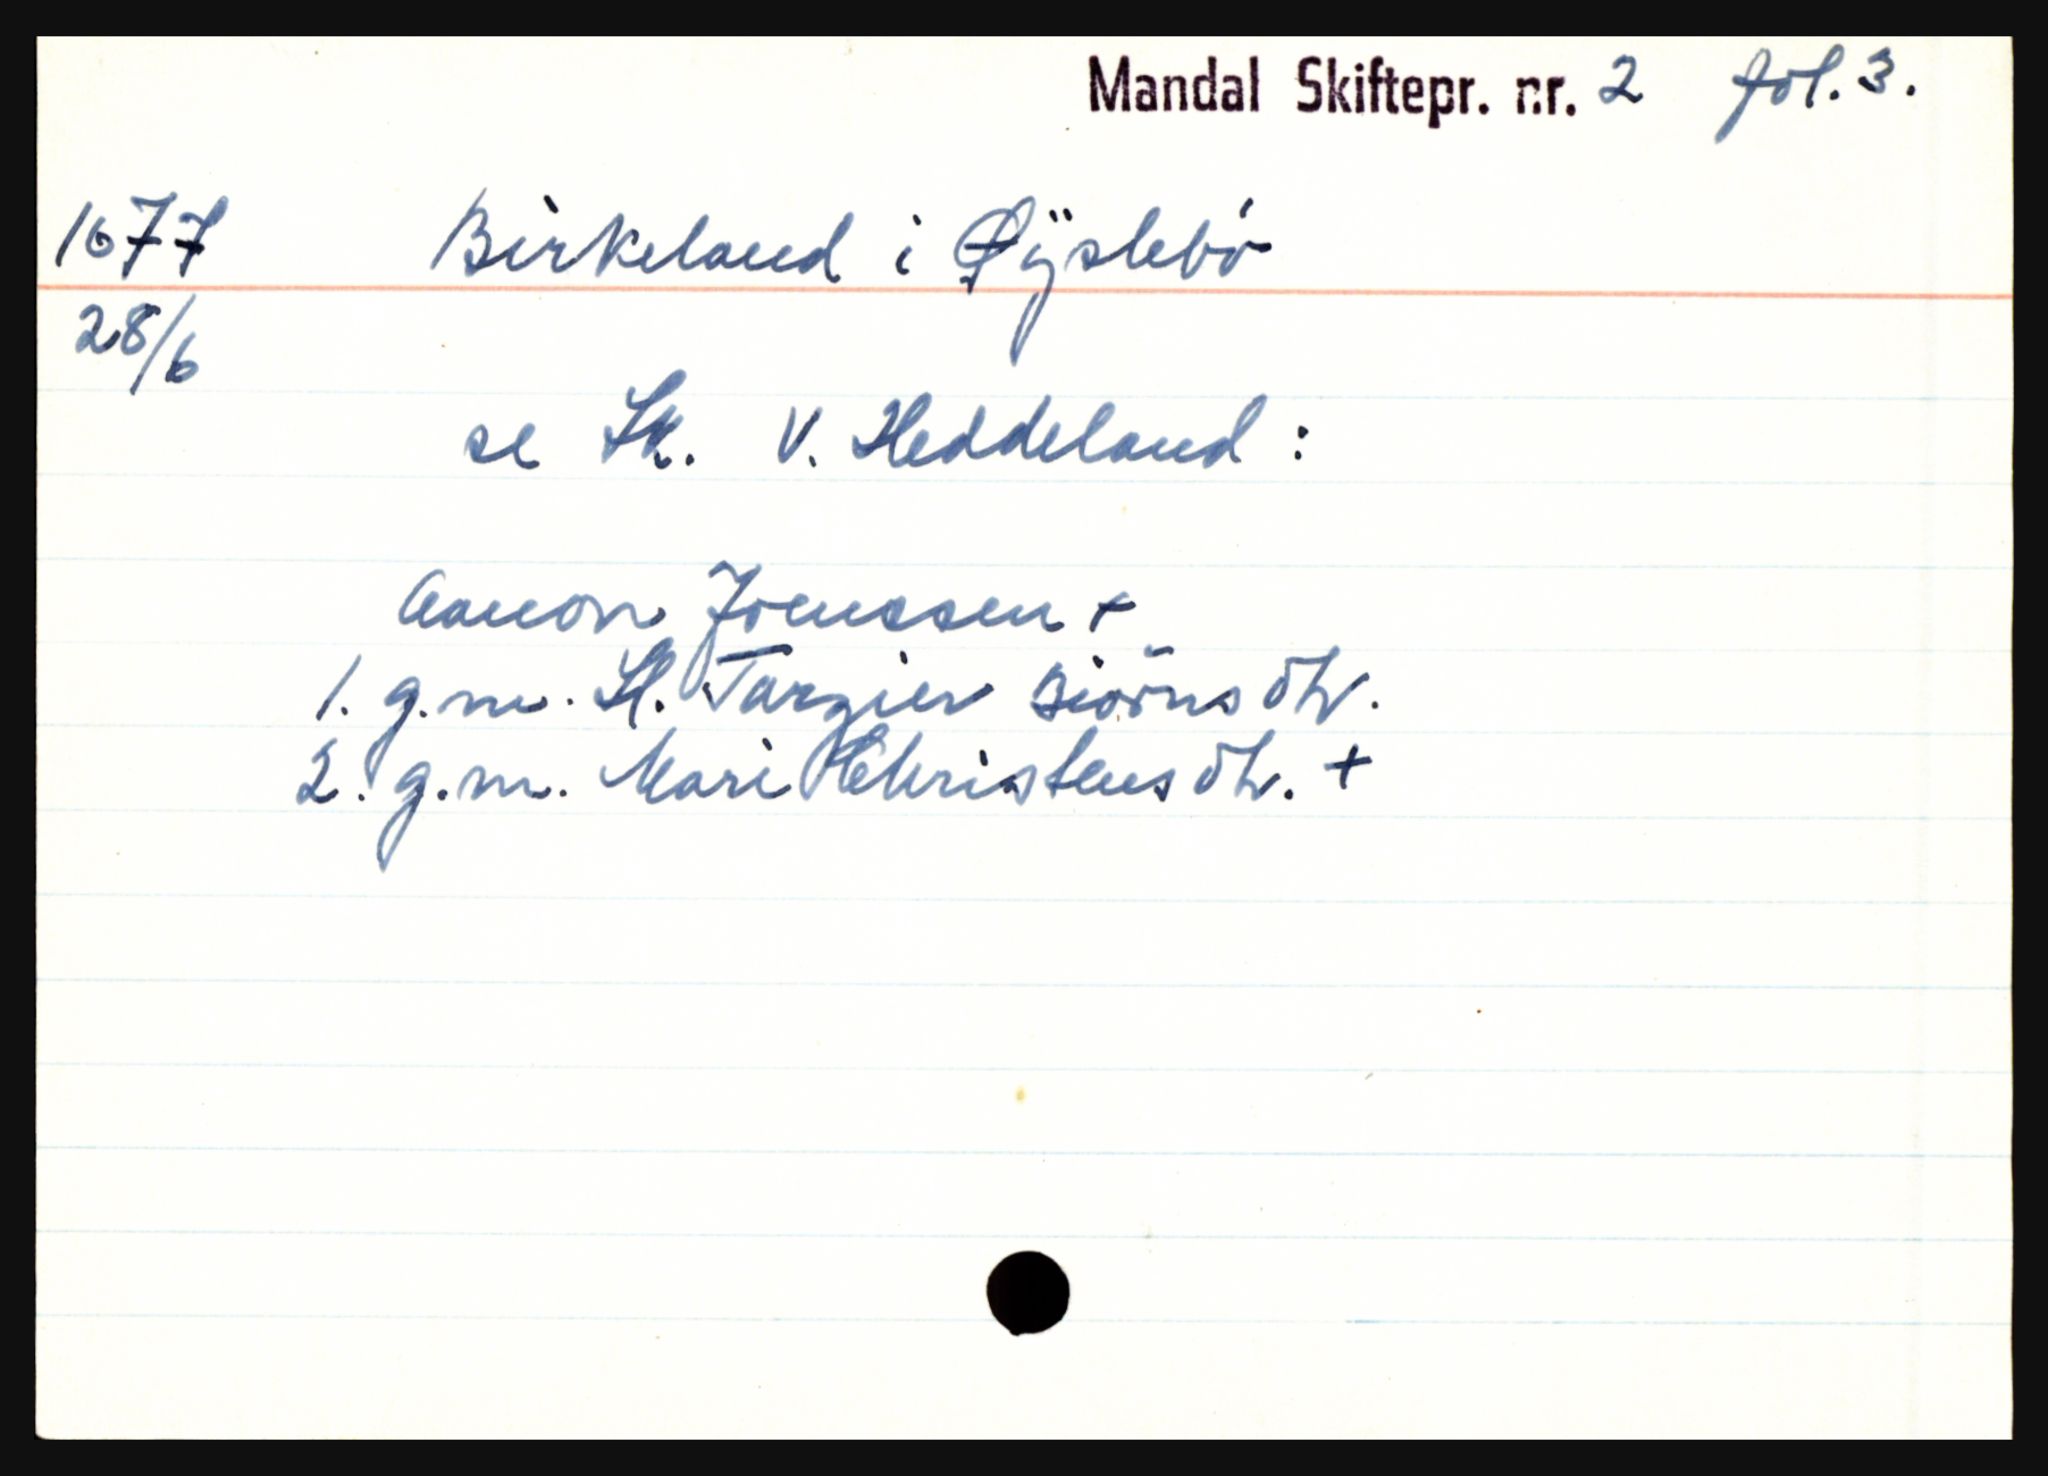 Mandal Skiftepr. nr. 2 fol. 3.
1677 Birkeland i Øÿslebó
28/6
se Sk. V. Heddeland :
Aanon Joenssen +
1. g.m. Sl. Targier Biörnsdtr.
2. g.m. Mari Christensdtr. +